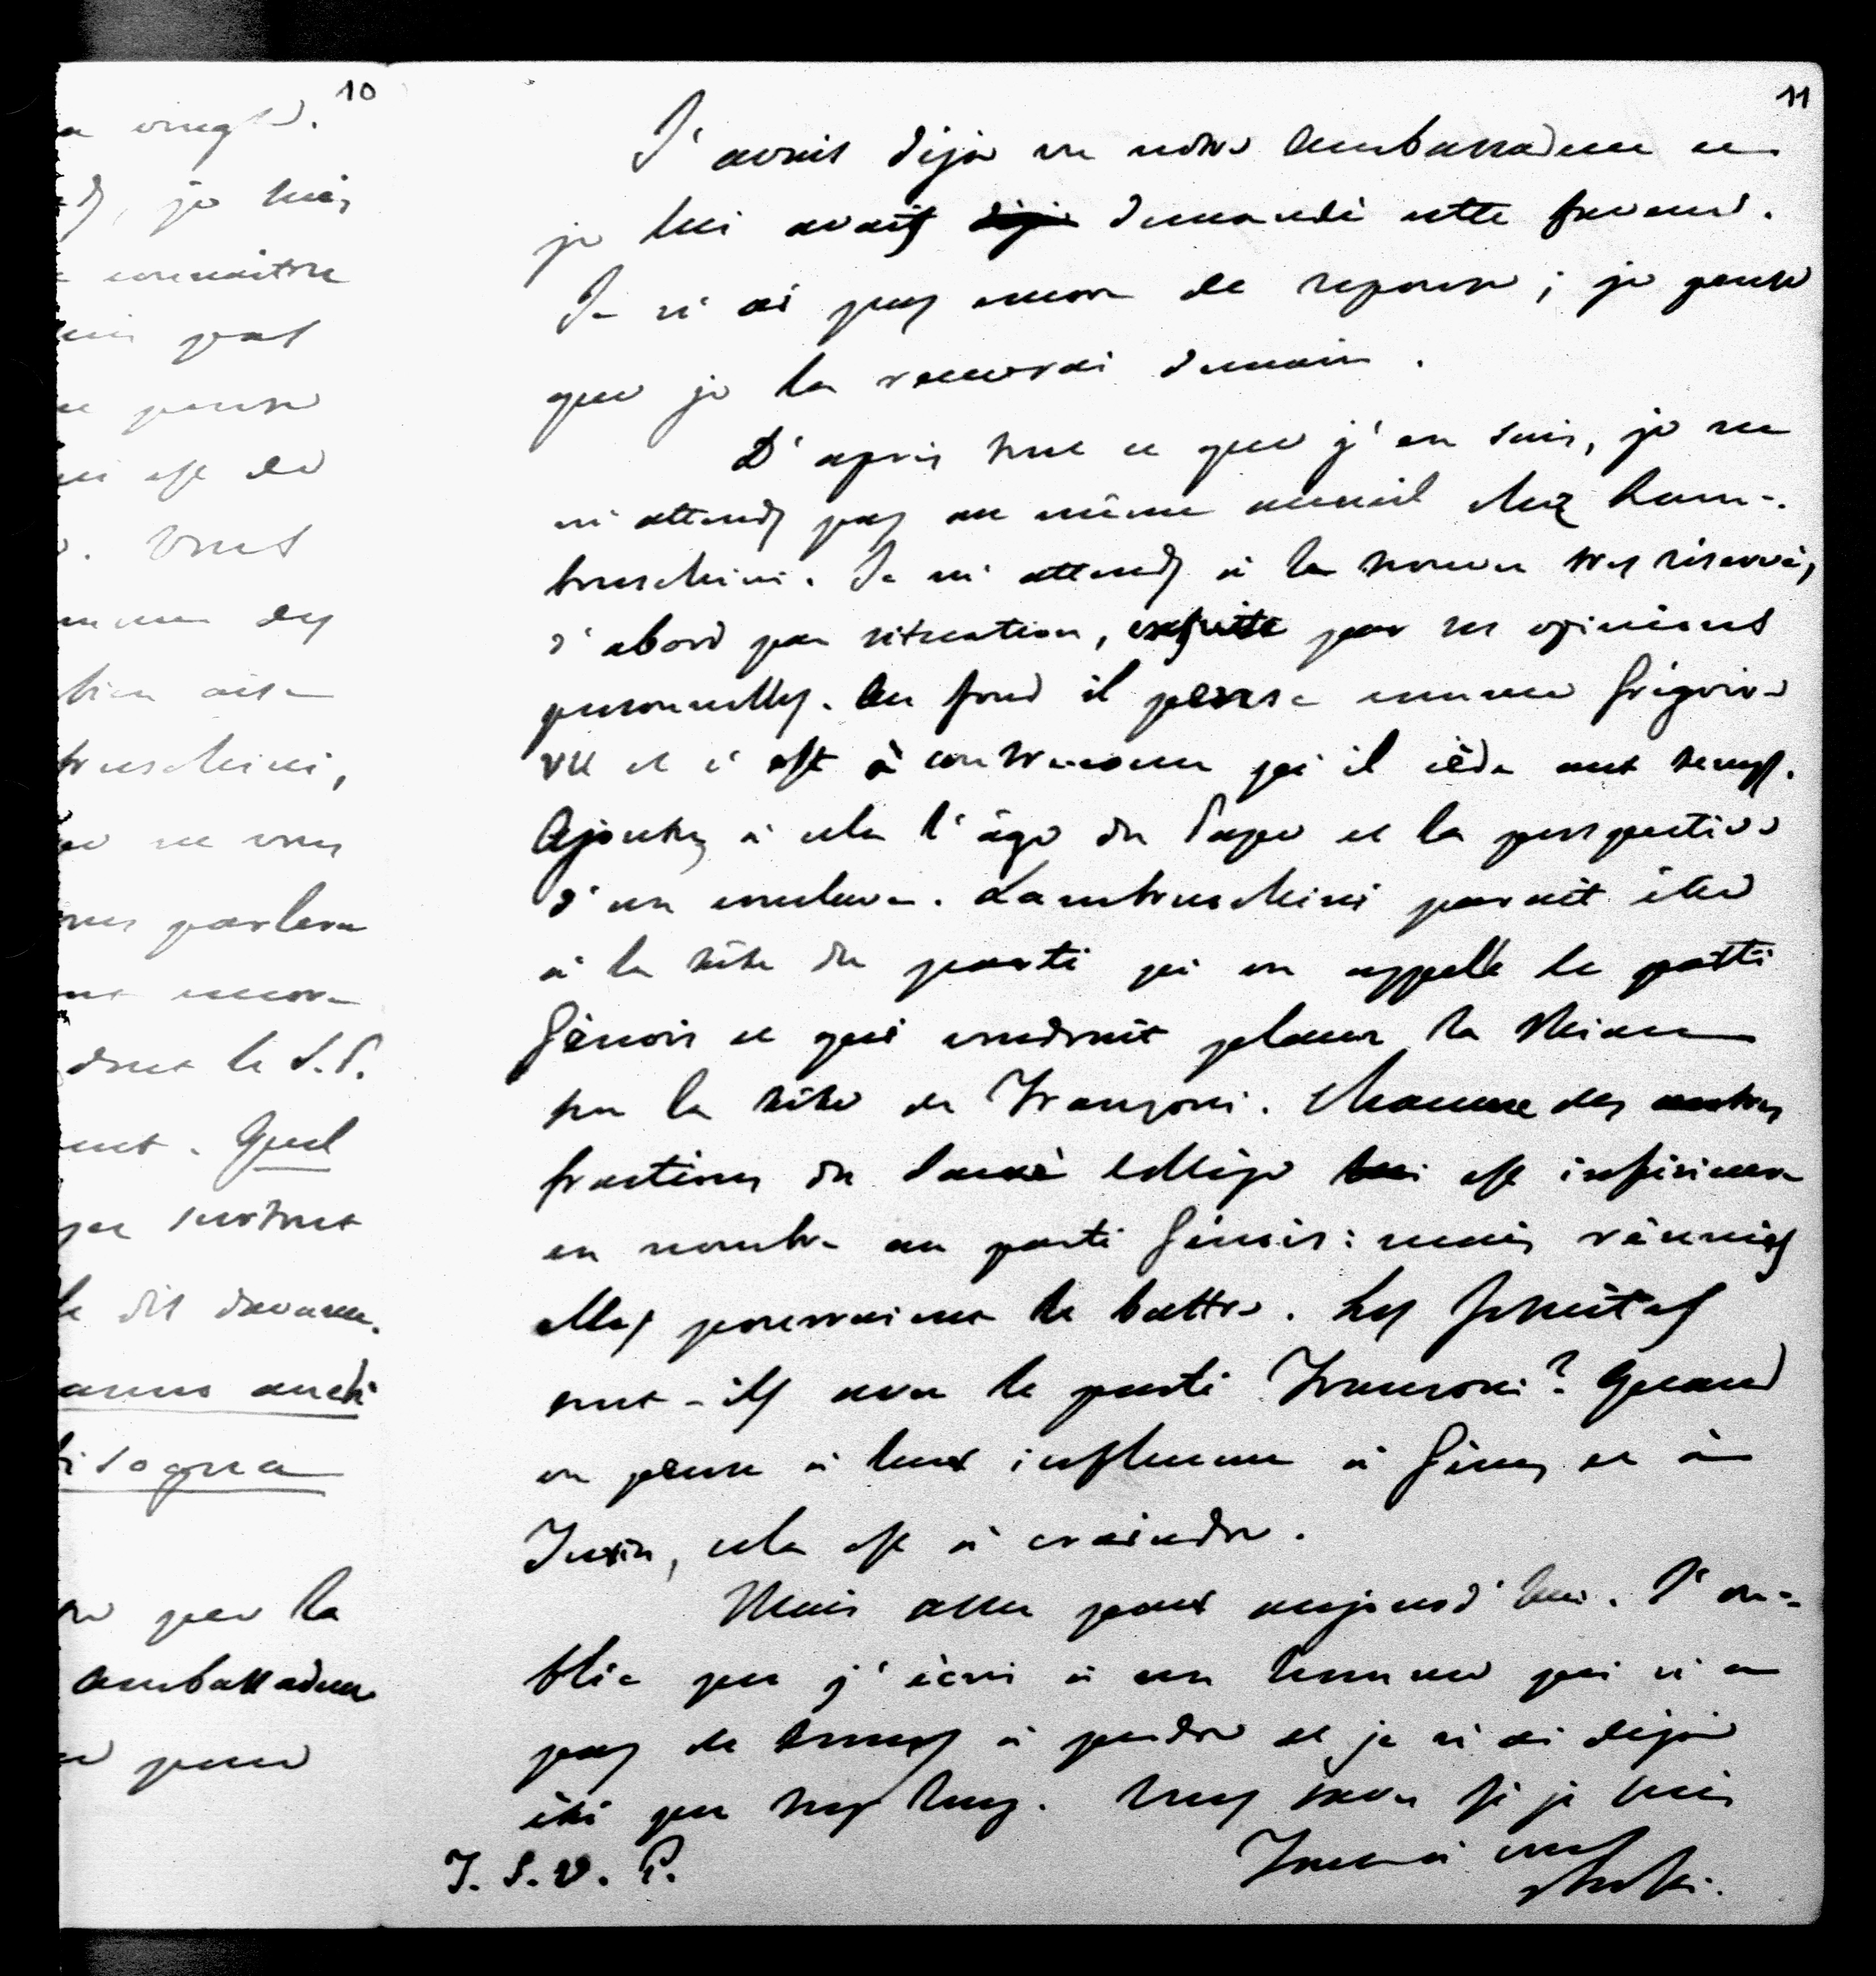 10
a vingt.
je suis
connaitre
pas
pense
est de
. Vous
des
bien aise
bruschini,
ne vous
vous parlera
encore
dont le S. P.
. Quel
par surtout
le dit davance.
anno anche
bisogna
par la
ambassadeur
pour
11
J'avais déja vu notre Ambassadeur et
je lui avais déja demandé cette faveur.
Je n'ai pas encore de reponse ; je pense
que je la recevrai demain.
D'après tout ce que j'en sais, je ne
m'attends pas au même accueil chez Lam-
bruschini. Je m'attends à le trouver très réservé,
d'abord par situation, ensuite par ses opinions
personnelles. Au fond il pense comme Grégoire
VII et c'est à contrecoeur qu'il cède aux temps.
Ajoutez à cela l'âge du Pape et la perspective
d'un conclave. Lambruschini parait être
à la tête du parti qu'on appelle le parti
Génois et qui voudrait placer la thiare
sur la tête de Franzoni. Chacune des autres
fractions du Sacré Collège lui est inférieure
en nombre au parti Génois : mais réunies
elles pourraient le battre. Les Jésuites
sont-ils avec le parti Franzoni? Quand
on pense à leur influence à Gênes et à
Turin, cela est à craindre.
Mais assez pour aujourd'hui. J'ou-
blie que j'écris à un homme qui n'a
pas de temps à perdre et je n'ai déjà
été que trop long. Vous savez si je suis
T. S. V. P.
Tout à vous